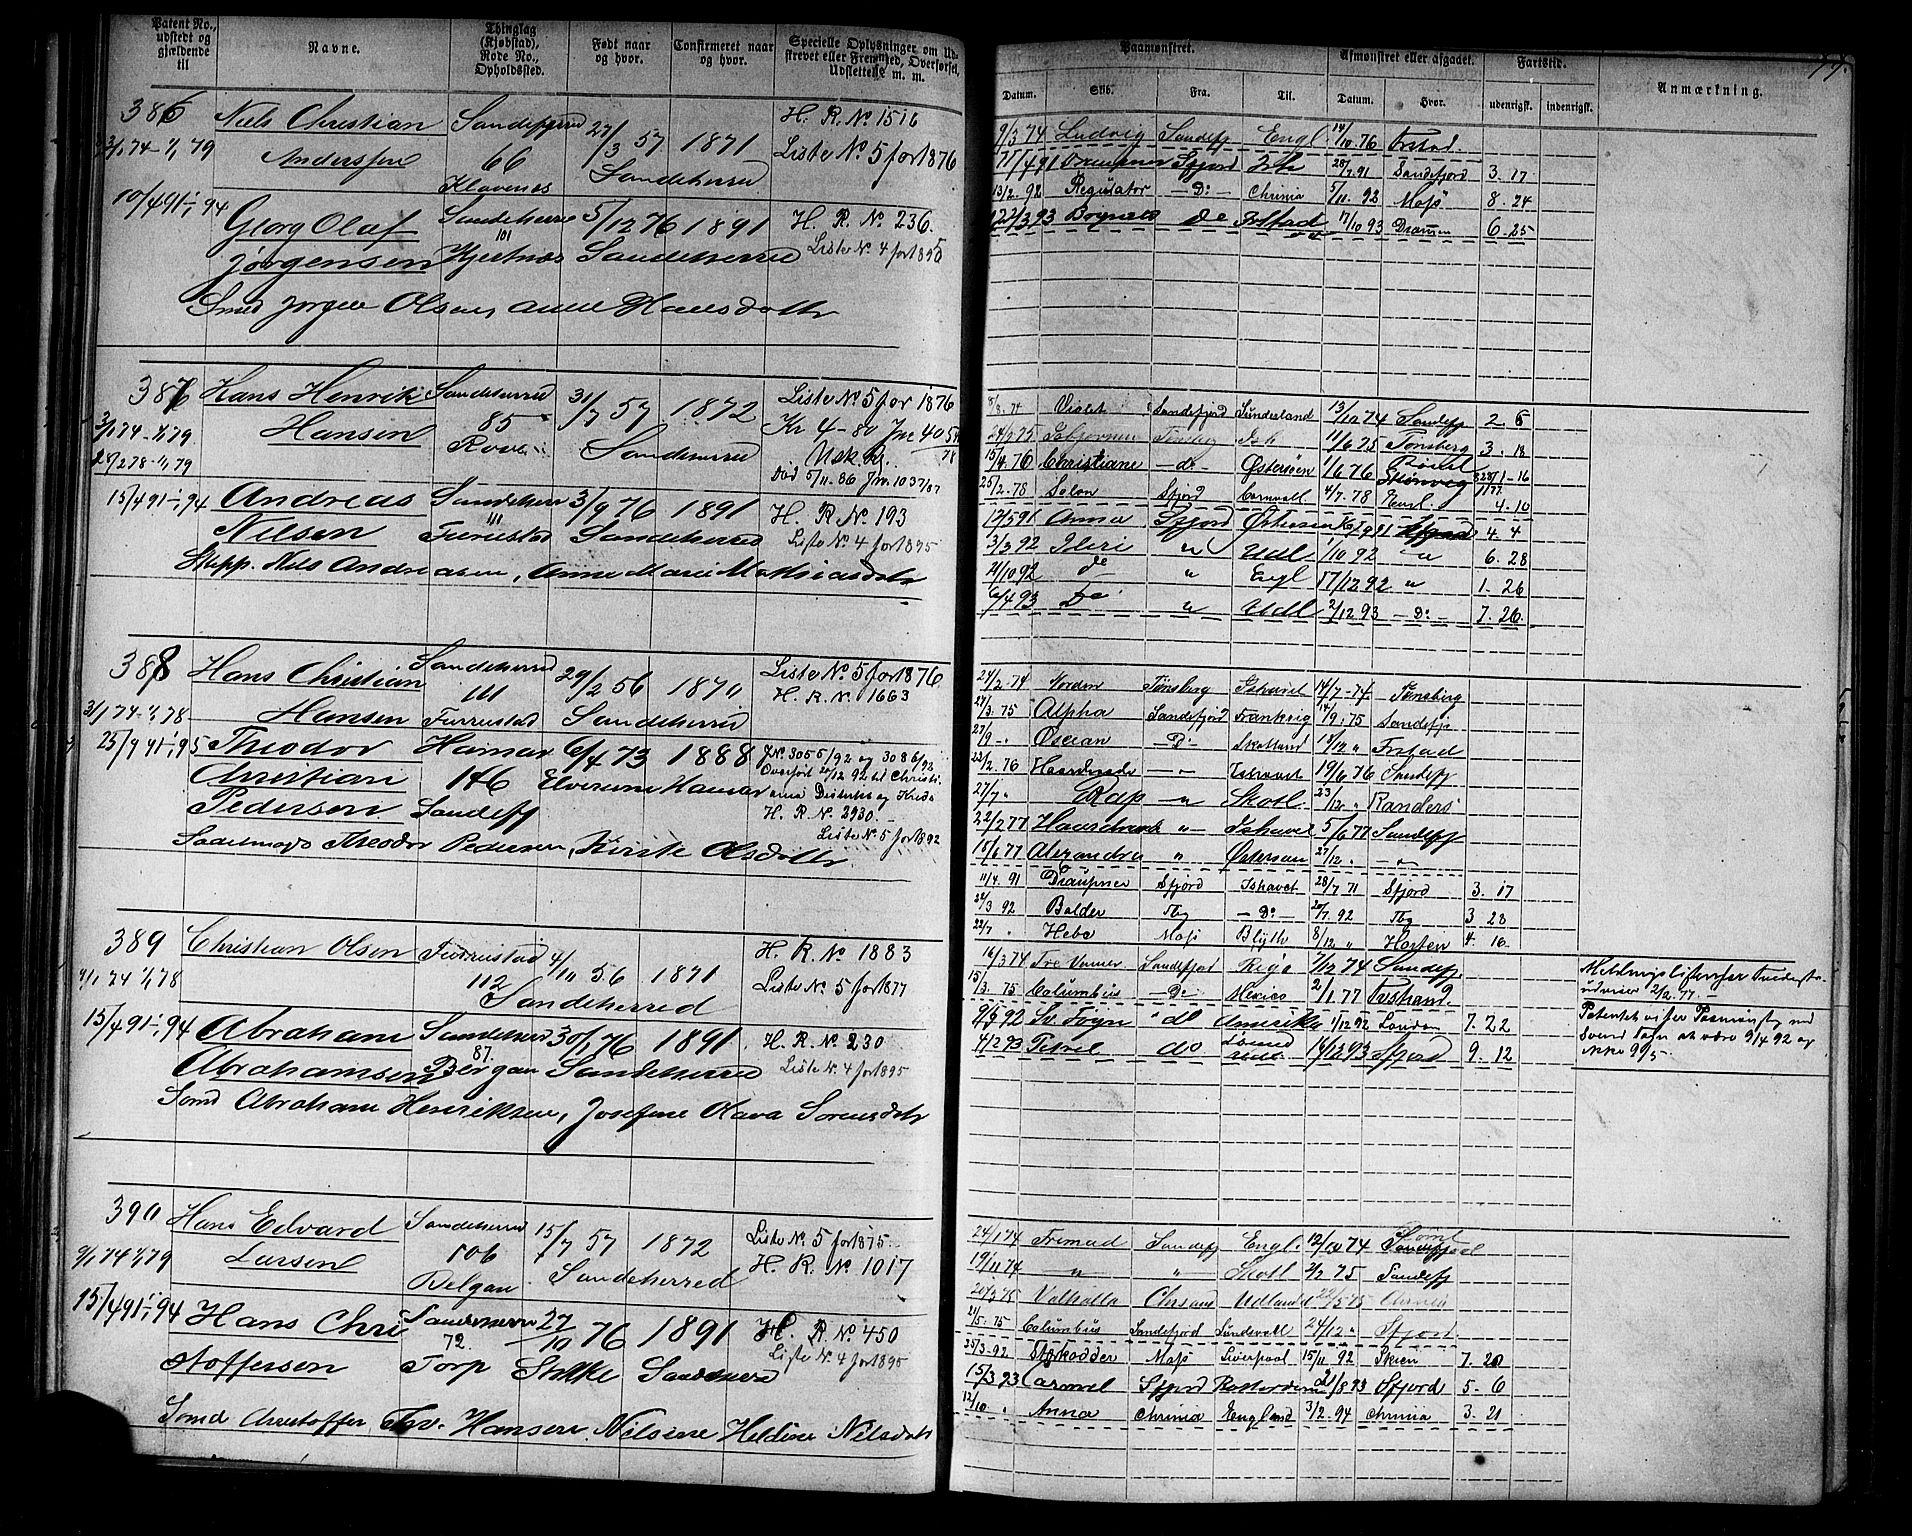 Patent No., udstedt og gjældende til
Navne.
Thinglag (Kjøbstad), Rode No., Opholdssted.
Født naar og hvor.
Confirmeret naar og hvor.
Specielle Oplysninger om Udskrevet eller Fremmed, Overførsel, Udslettelse m. m.
386 Niels Christian Sandeherred 27/3 57 1871 H. R. No 1516
2/1 74 - 1/1 79 Anderssen 66 Sandeherred Liste No 5 for 1876
Klavenes
10/4 91 - 1/1 94 Georg Olaf Sandeherre 5/12 76 1891 H. R. No 236.
Jörgensen 101 Hjertnæs Sandeherred Liste No 4 for 1895
Smed Jørgen Olsen, Anne Hansdattr
387 Hans Henrik Sandeherred 31/7 57 1872 Liste No 5 for 1876
3/1 74 - 1/1 79 Hansen 85 Sandeherred Kr 4-80 Jnr 40 54/78
28/2 78 - 1/1 79
Död 5/11. 86 Jnr 1037/87
15/4 91 - 1/1 94 Andreas Sandeherr 3/9 76 1891 H. R. No 193
Nilsen 111 Furustad Sandeherred Liste No 4 for 1895
Skipp. Nils Andreasen, Anne Marie Mathiasdatr
388 Hans Christian Sandeherred 29/2 56 1870 Liste No 5 for 1876
111 H. R. No. 1663
3/1 74 - 1/1 78 Hansen Furrustad Sandeherred
25/9 91 - 1/1 95 Theodor Hamar 6/4 73 1888 J No 3055/92 og 3086/92
Christian 146 Elverum Hamar Overført 21/12 92 til Christiania Distrikts og Kreds
Pedersen Sandefj H. R. No. 2930.
Liste No. 5 for 1892
Sadelmager Theodor Pedersen, Kirsti Olsdattr
389 Christian Olsen Furrustad 4/11 56 1871 H. R. No 1883
9/1 74 1/1 78 112 Sandeherred Liste No 5 for 1877
15/4 91 - 1/1 94 Abraham Sandeherred 30/1 76 1891 H. R. No 230
Abrahamsen 87. Bergan Sandeherred Liste No. 4 for 1895
Smd Abraham Henriksen, Josefine Olava Sorensdatr
390 Hans Edvard Sandeherred 15/7 57 1872 Liste No. 5 for 1875.
9/1 74 1/1 79 Larsen 106 Sandeherred H. R. No 1017
Belgau
15/4 91 - 1/1 94 Hans Chri Sandeherre 27/10 76 1891 H. R. No 450
stoffersen 72. Torp Stokke Sandeherred Liste No. 4 for 1895
Smd Christoffer Hansen, Nilsine Heldine Nilsdatr
Paamønstret.
Afmønstret eller afgaaet.
Fartstid.
Anmærkning.
77.
Datum. Skib. Fra. Til. Datum. Hvor. udenrigsk. indenrigsk.
9/3 74 Ludvig Sandefj Engl. 14/10 76 Frstad.
11/4 91 Draupner Sfjord Ish 28/7 91 Sandefjord 3. 17
13/2. 92 Regulator - Do - Chrinia 5/11 92 Moss 8. 24
12/3 93 do 17/10 93 Dramen 6. 25
74 Violet Sandefjord Sunderland 13/10 74 Sandefj 2 6
24/2 75 Tønsberg Ish 11/6 75 Tønsberg 3. 18
15/4. 76 Christiane - do - Østersöen 1/6 76
25/2. 78 Solon Sfjord Cornvall 4/7. 78 Engl. 4. 10
12/5 91 Anna Sfjord Østersøen 4. 4
3/3 92 Ideri " Udl 1/10 92 " 6. 28
21/10 92 do " Engl 17/12 92 " 1. 26
6/4 93 Do " Udl 2/12 93 - Do - 7. 26.
24/2. 74 Norden Tønsberg Ishavet 14/7 - 74. Tønsberg
24/3. 75 Alpha Sandefjord Frankrig 14/9. 75 Sandefj
27/9 - " Oscean - Do - Skotland 18/12 " Frstad
22/2. 76 Haardraade - " - Ishavet 19/6 76 Sandefj
27/7 " Rap - " Skotl. 23/12. " Randers
22/2 77 Haardraade " - Ishavet 5/6 77 Sandefj
15/6 77 Alexandra " Østersøen 27/12 . - " -
11/4. 91 Draupner Sfjord Ishavet 28/7 91 Sfjord 3. 17
24/3 92 Balder Tbg - Do - 20/7. 92 Tbg 3 23
22/7 " Hebe Moss Blyth 8/12 " Horten 4. 16
16/3 74 Tre Venner Sandefjord Riga 7/12 74 Sandefj.
15/3. 75 Columbus - Do - Mexico 2/1. 77
9/5 92 Sv. Foyn " do Amerika 1/12 92 London 7. 22
4/2 93 Petrel do 16/12 93 Sfjord 9. 12
2/2. 77. -
24/1 74 Fremad Sandefj Engl. 12/10 74
19/11 74 " " Skotl 2/2 75 Sandefj
20/3 75 Valhalla Chrsand Udlandet 22/5 75 Chrinia
21/5. 75 Columbus Sandefjord Sundsvall 24/12 " Sfjord.
25/3. 92 Stærkodder Moss Liverpool 15/11. 92 Skien 7. 20
15/3 93 Carmel Sfjord 21/8 93 Sfjord 5. 6
12/10 " Anna Chrinia England 3/2. 94 Chrinia 3. 21